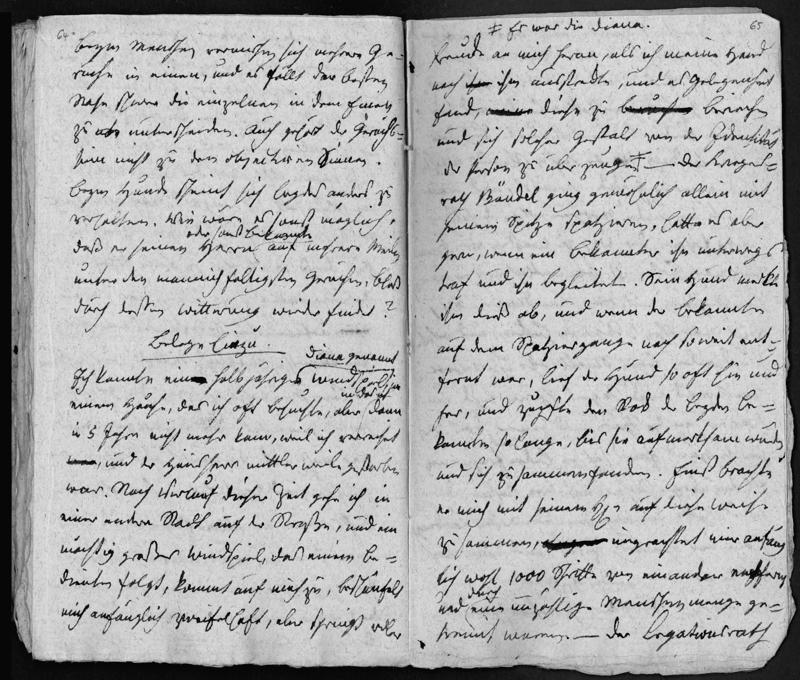 64
beym Menschen vermischen sich mehrere Ge-
rüche in einen, und es fällt der besten
Nase schwer die einzelnen in dem Einen
zu unterscheiden. Auch gehört der Geruchs-
sinn nicht zu den objectiven Sinnen.
beym Hunde scheint sich beydes anders zu
verhalten. Wie wäre es sonst möglich,
oder sonst bekannte
daß er seinen Herrn auf mehrere Meilen
unter den mannichfaltigsten Gerüchen, bloß
durch dessen Witterung wieder findet?
Belege hiezu.
Diana genannt
Ich kannte ein halbjähriges Windspiel, in
einem Hause, das ich oft besuchte, aber dann
in 5 Jahren nicht mehr kam, weil ich verreiset
, und der Hausherr mittlerweile gestorben
war. Nach Verlauf dieser Zeit gehe ich in
einer andern Stadt auf der Straße, und ein
mächtig großes Windspiel, das einem Be-
dienten folgt, kommt auf mich zu, beschnüffelt
mich anfänglich zweifelhaft, aber springt voller
65
‡ Es war die Diana.
Freude an mich heran, als ich meine Hand
nach ihm ausstreckte, und es Gelegenheit
fand, diese zu beriechen
und sich solcher Gestalt von der Identität
der Person zu überzeugen ‡ — Der Kriegs-
rath Bändel ging gewöhnlich allein mit
seinem Spitze spatzieren, hatte es aber
gern, wenn ein bekannter ihn unterwegs
traf und ihn begleitete. Sein Hund merkte
ihm dieß ab, und wenn der bekannte
auf dem Spatziergange noch so weit ent-
fernt war, lief der Hund so oft hin und
her, und zupfte den Rock der beyden Be-
kannten so lange, bis sie aufmerksam wurden
und sich zusammenfanden. Einst brachte
er mich mit seinem Hrn auf diese weise
zusammen, ungeachtet wir anfäng-
lich wohl 1000 Schritte von einander entfernt
und durch eine unzählige Menschenmenge ge-
trennt waren. — Der Legationsrath